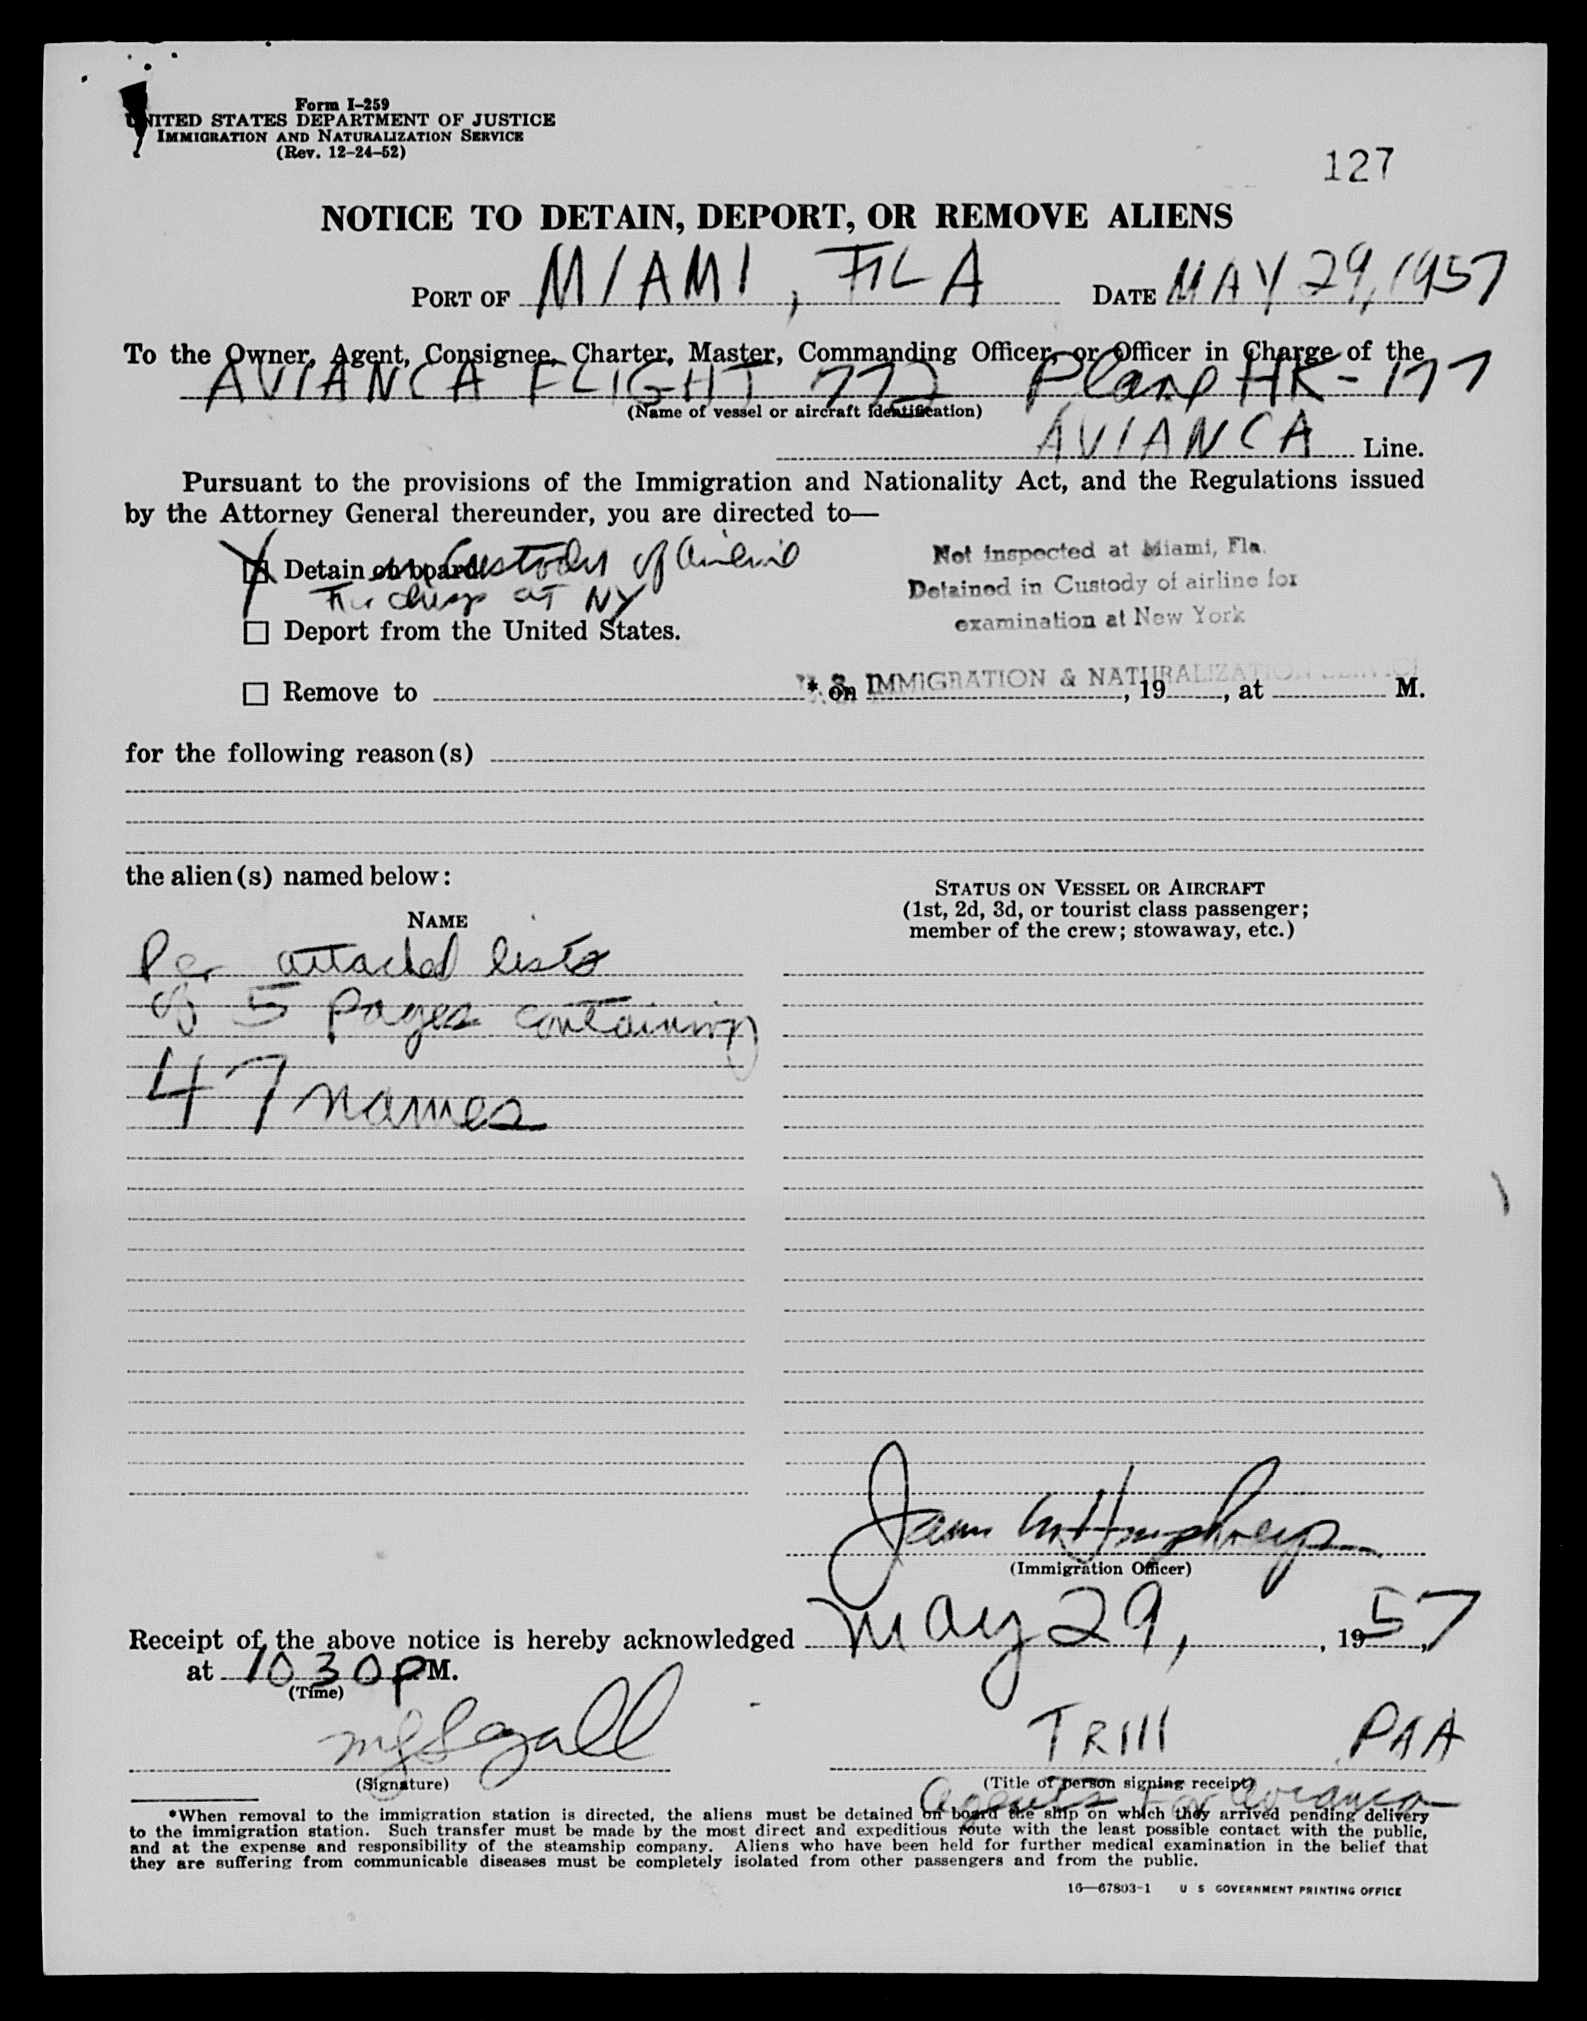 Form I-259
UNITED STATES DEPARTMENT OF JUSTICE
IMMIGRATION AND NATURALIZATION SERVICE
(Rev. 12-24-52)
127
NOTICE TO DETAIN, DEPORT, OR REMOVE ALIENS
PORT OF MIAMI, FLA DATE MAY 29, 1957
To the Owner, Agent, Consignee, Charter, Master, Commanding Officer, or Officer in Charge of the
AVIANCA FLIGHT 772 Plane HK-177
(Name of vessel or aircraft identification)
AVIANCA Line.
Pursuant to the provisions of the Immigration and Nationality Act, and the Regulations issued
by the Attorney General thereunder, you are directed to—
Detain on board. Custody of airline
at NY
Not Inspected at Miami, Fla.
Detained in Custody of airline for
examination at New York
Deport from the United States.
U. S. IMMIGRATION & NATURALIZATION SERVICE
Remove to * on , 19 , at M.
for the following reason(s)
the alien(s) named below:
NAME
STATUS ON VESSEL OR AIRCRAFT
(1st, 2d, 3d, or tourist class passenger;
member of the crew; stowaway, etc.)
Per attached lists
of 5 Pages containing
47 names
Humphreys
(Immigration Officer)
Receipt of the above notice is hereby acknowledged May 29, , 1957,
at 10 30 PM.
(Time)
TR III PAA
(Signature)
(Title of person signing receipt)
Agents For Avianca
*When removal to the immigration station is directed, the aliens must be detained on board the ship on which they arrived pending delivery
to the immigration station. Such transfer must be made by the most direct and expeditious route with the least possible contact with the public,
and at the expense and responsibility of the steamship company. Aliens who have been held for further medical examination in the belief that
they are suffering from communicable diseases must be completely isolated from other passengers and from the public.
16—67803-1 U S GOVERNMENT PRINTING OFFICE